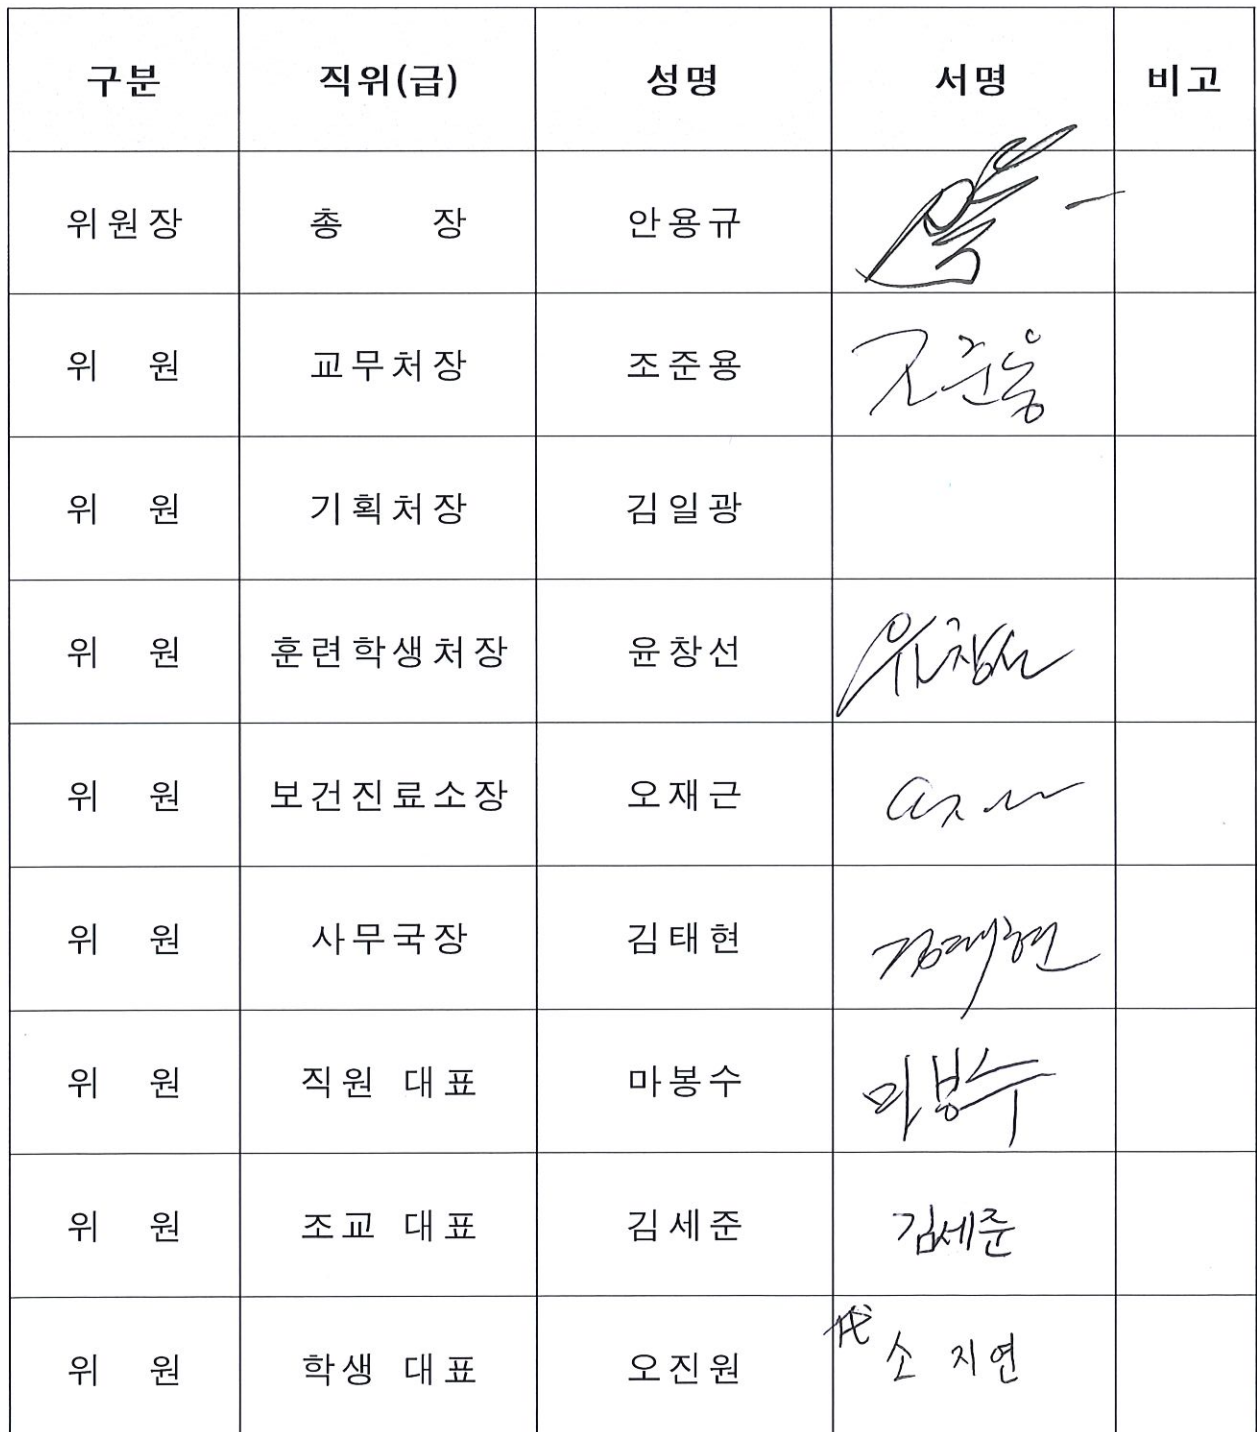 구분 직위(급) 성명 서명 비고
위원장 총 장 안용규
위 원 교무처장 조준용 조준용
위 원 기획처장 김일광
위 원 훈련학생처장 윤창선 윤창선
위 원 보건진료소장 오재근
위 원 사무국장 김태현 김태현
위 원 직원 대표 마봉수 마봉수
위 원 조교 대표 김세준 김세준
위 원 학생 대표 오진원 代 소지연